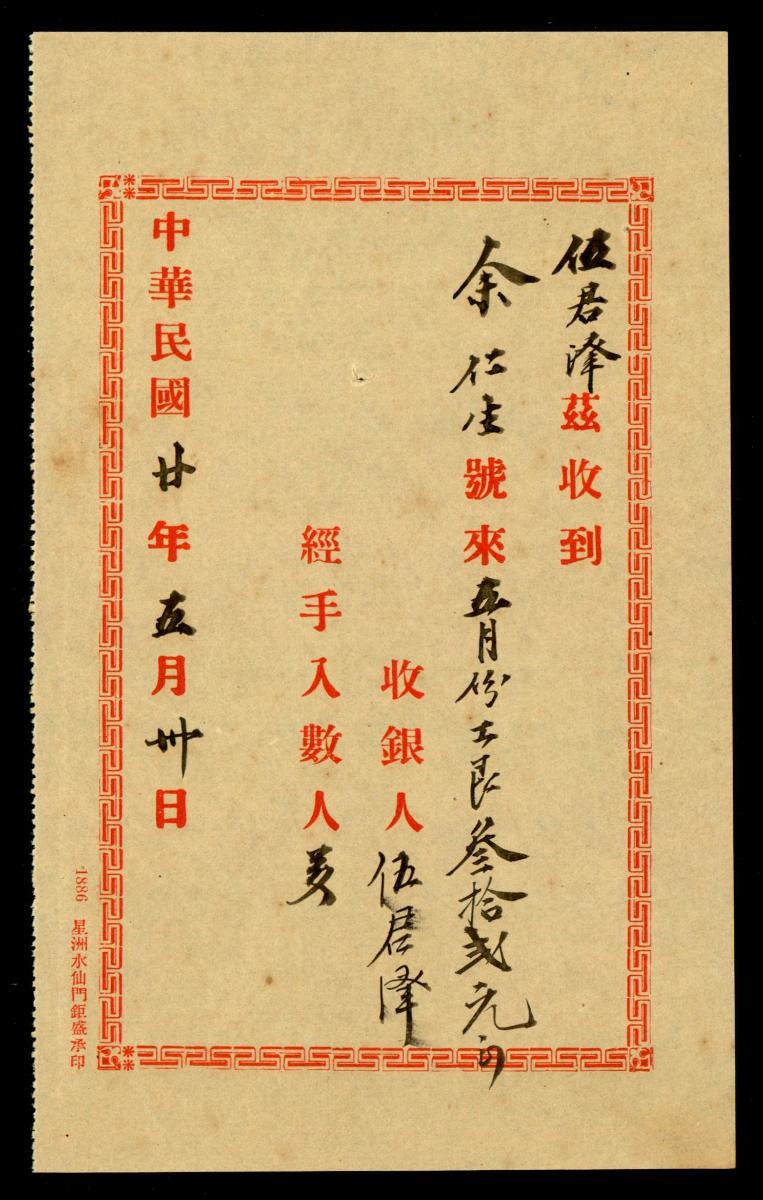 伍君澤茲收到
余仁生號來五月份工艮叄拾弍元正
收銀人伍君澤
經手入數人
中華民國廿年五月卅日
1886 星洲水仙門鉅盛承印